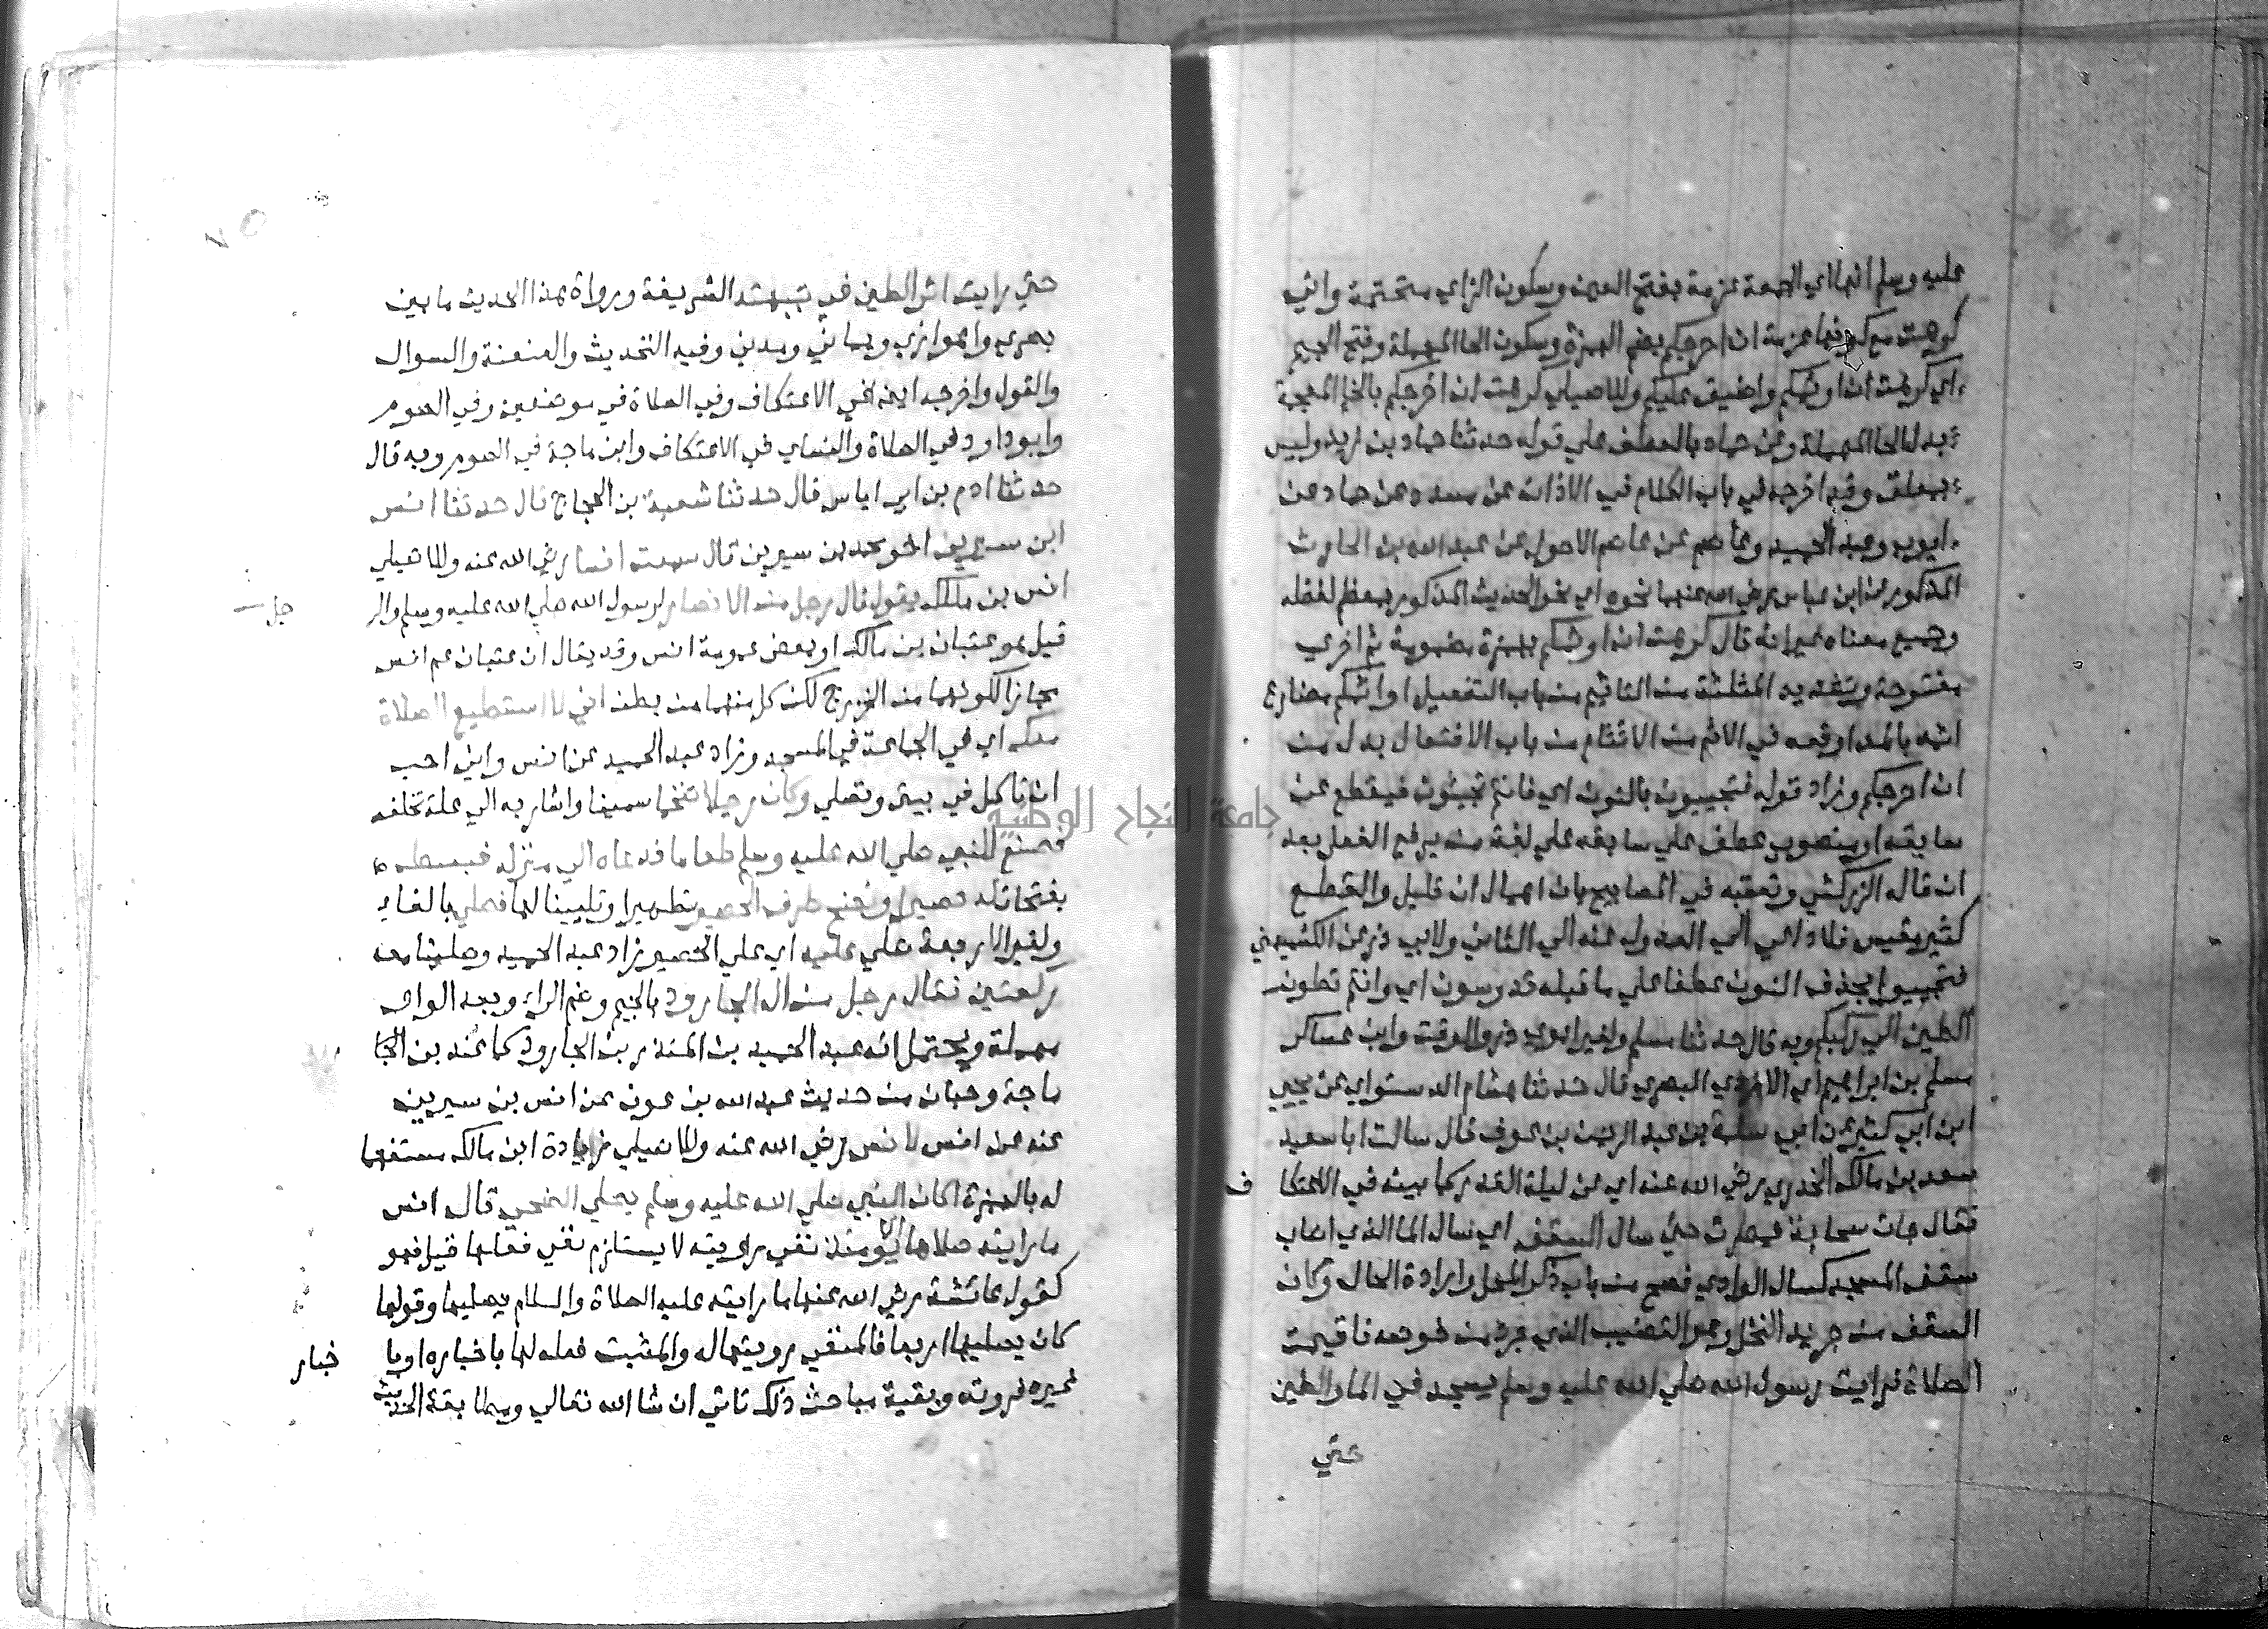 عليه وسلم انها اي الجمعة عزمة بفتح العين وسكون الزاي متحتمة واني
كرهت مع كونها عزمة ان احرجكم بضم الهمزة وسكون الحا المهملة وفتح الجيم
اي كرهت ان اوثمكم واضيق عليكم وللاصيلي كرهت ان اخرجكم بالخا المعجمة
بدل الحا المهملة وعن حماد بالعطف علي قوله حدثنا حماد بن زيد وليس
بمعلق وقد اخرجه في باب الكلام في الاذان عن مسدد عن حماد عن
ايوب وعبد الحميد وعاصم عن عاصم الاحول عن عبد الله بن الحارث
المذكور عن ابن عباس رضي الله عنهما نحوه اي نحو الحديث المذكور بمعظم لفظه
وجميع معناه غير انه قال كرهت ان اوثمكم بهمزة مضمومة ثم اخري
مفتوحة وتشديد المثلثة من التاثيم من باب التفعيل او اثمكم مضارع
اثمه بالمد اوقعه في الاثم من الاثتام من باب الافتعال بدل من
ان احرجكم وزاد قوله فتجيبون بالنون اي فانتم تجيئون فيقطع عن
سابقه او منصوب عطف علي سابقه علي لغة من يرفع الفعل بعد
ان قاله الزركشي وتعقبه في المصابيح بان اهمال ان قليل والقطع
كثير مقيس فلا داعي الي العدول عنه الي الثاني ولابي ذر عن الكشميهني
فتجيبوا بحذف النون عطفا علي ما قبله تدوسون اي وانتم تطون
الطين الي ركبكم وبه قال حدثنا مسلم ولغير ابوي ذر والوقت وابن عساكر
مسلم بن ابراهيم اي الازدي البصري قال حدثنا هشام الدستواي عن يحيي
ابن ابي كثير عن ابي سلمة بن عبد الرحمن بن عوف قال سالت ابا سعيد
سعد بن مالك الخدري رضي الله عنه اي عن ليلة القدر كما بينه في الاعتكا ف
فقال جات سحابة فمطرت حتي سال السقف اي سال الما الذي اصاب
سقف المسجد كسال الوادي فصح من باب ذكر المحل وارادة الحال وكان
السقف من جريد النخل وهو القضيب الذي جرد من خوصه فاقيمت
الصلاة فرايت رسول الله صلي الله عليه وسلم يسجد في الما والطين
حتي
حتي رايت اثر الطين في جبهته الشريفة ورواة هذا الحديث ما بين
بصري واهوازي ويماني ومدني وفيه التحديث والعنعنة والسوال
والقول واخرجه ايضا في الاعتكاف وفي الصلاة في موضعين وفي الصوم
وابو داود في الصلاة والنساي في الاعتكاف وابن ماجة في الصوم وبه قال
حدثنا ادم بن ابي اياس قال حدثنا شعبة بن الحجاج قال حدثنا انس
ابن سيرين اخو محمد بن سيرين قال سمعت انسا رضي الله عنه وللاصيلي
انس بن مالك يقول قال رجل من الانصار لرسول الله صلي الله عليه وسلم والر جل
قيل هو عتبان بن مالك او بعض عمومة انس وقد يقال ان عتبان عم انس
مجازا لكونهما من الخزرج لكن كل منهما من بطن اني لا استطيع الصلاة
معك اي في الجماعة في المسجد وزاد عبد الحميد عن انس واني احب
ان تاكل في بيتي وتصلي وكان رجلا ضخما سمينا واشار به الي علة تخلفه
فصنع للنبي صلي الله عليه وسلم طعاما فدعاه الي منزله فبسط له
بفتحات له حصيرا ونضح طرف الحصير تطهيرا او تليينا لها فصلي بالفا
ولغير الاربعة صلي عليه اي علي الحصير زاد عبد الحميد وصلينا معه
ركعتين فقال رجل من ال الجارود بالجيم وضم الراء وبعد الواو
مهملة ويحتمل انه عبد الحميد بن المنذر بن الجارود كما عند بن
ماجة وحبان من حديث عبد الله بن عون عن انس بن سيرين
عنه عن انس لانس رضي الله عنه وللاصيلي زيادة ابن مالك مستفهما
له بالهمزة اكان النبي صلي الله عليه وسلم يصلي الضحي قال انس
ما رايته صلاها الا يومئذ نفي رويته لا يستلزم نفي فعلها قيل فهو
كقول عائشة رضي الله عنها ما رايته عليه الصلاة والسلام يصليها وقولها
كان يصليها اربعا فالمنفي رويتها له والمثبت فعله لها باخباره او با خبار
غيره فروته وبقية مباحث ذلك تاتي ان شا الله تعالي ومطابقة الحديث
جامعة النجاح الوطنية